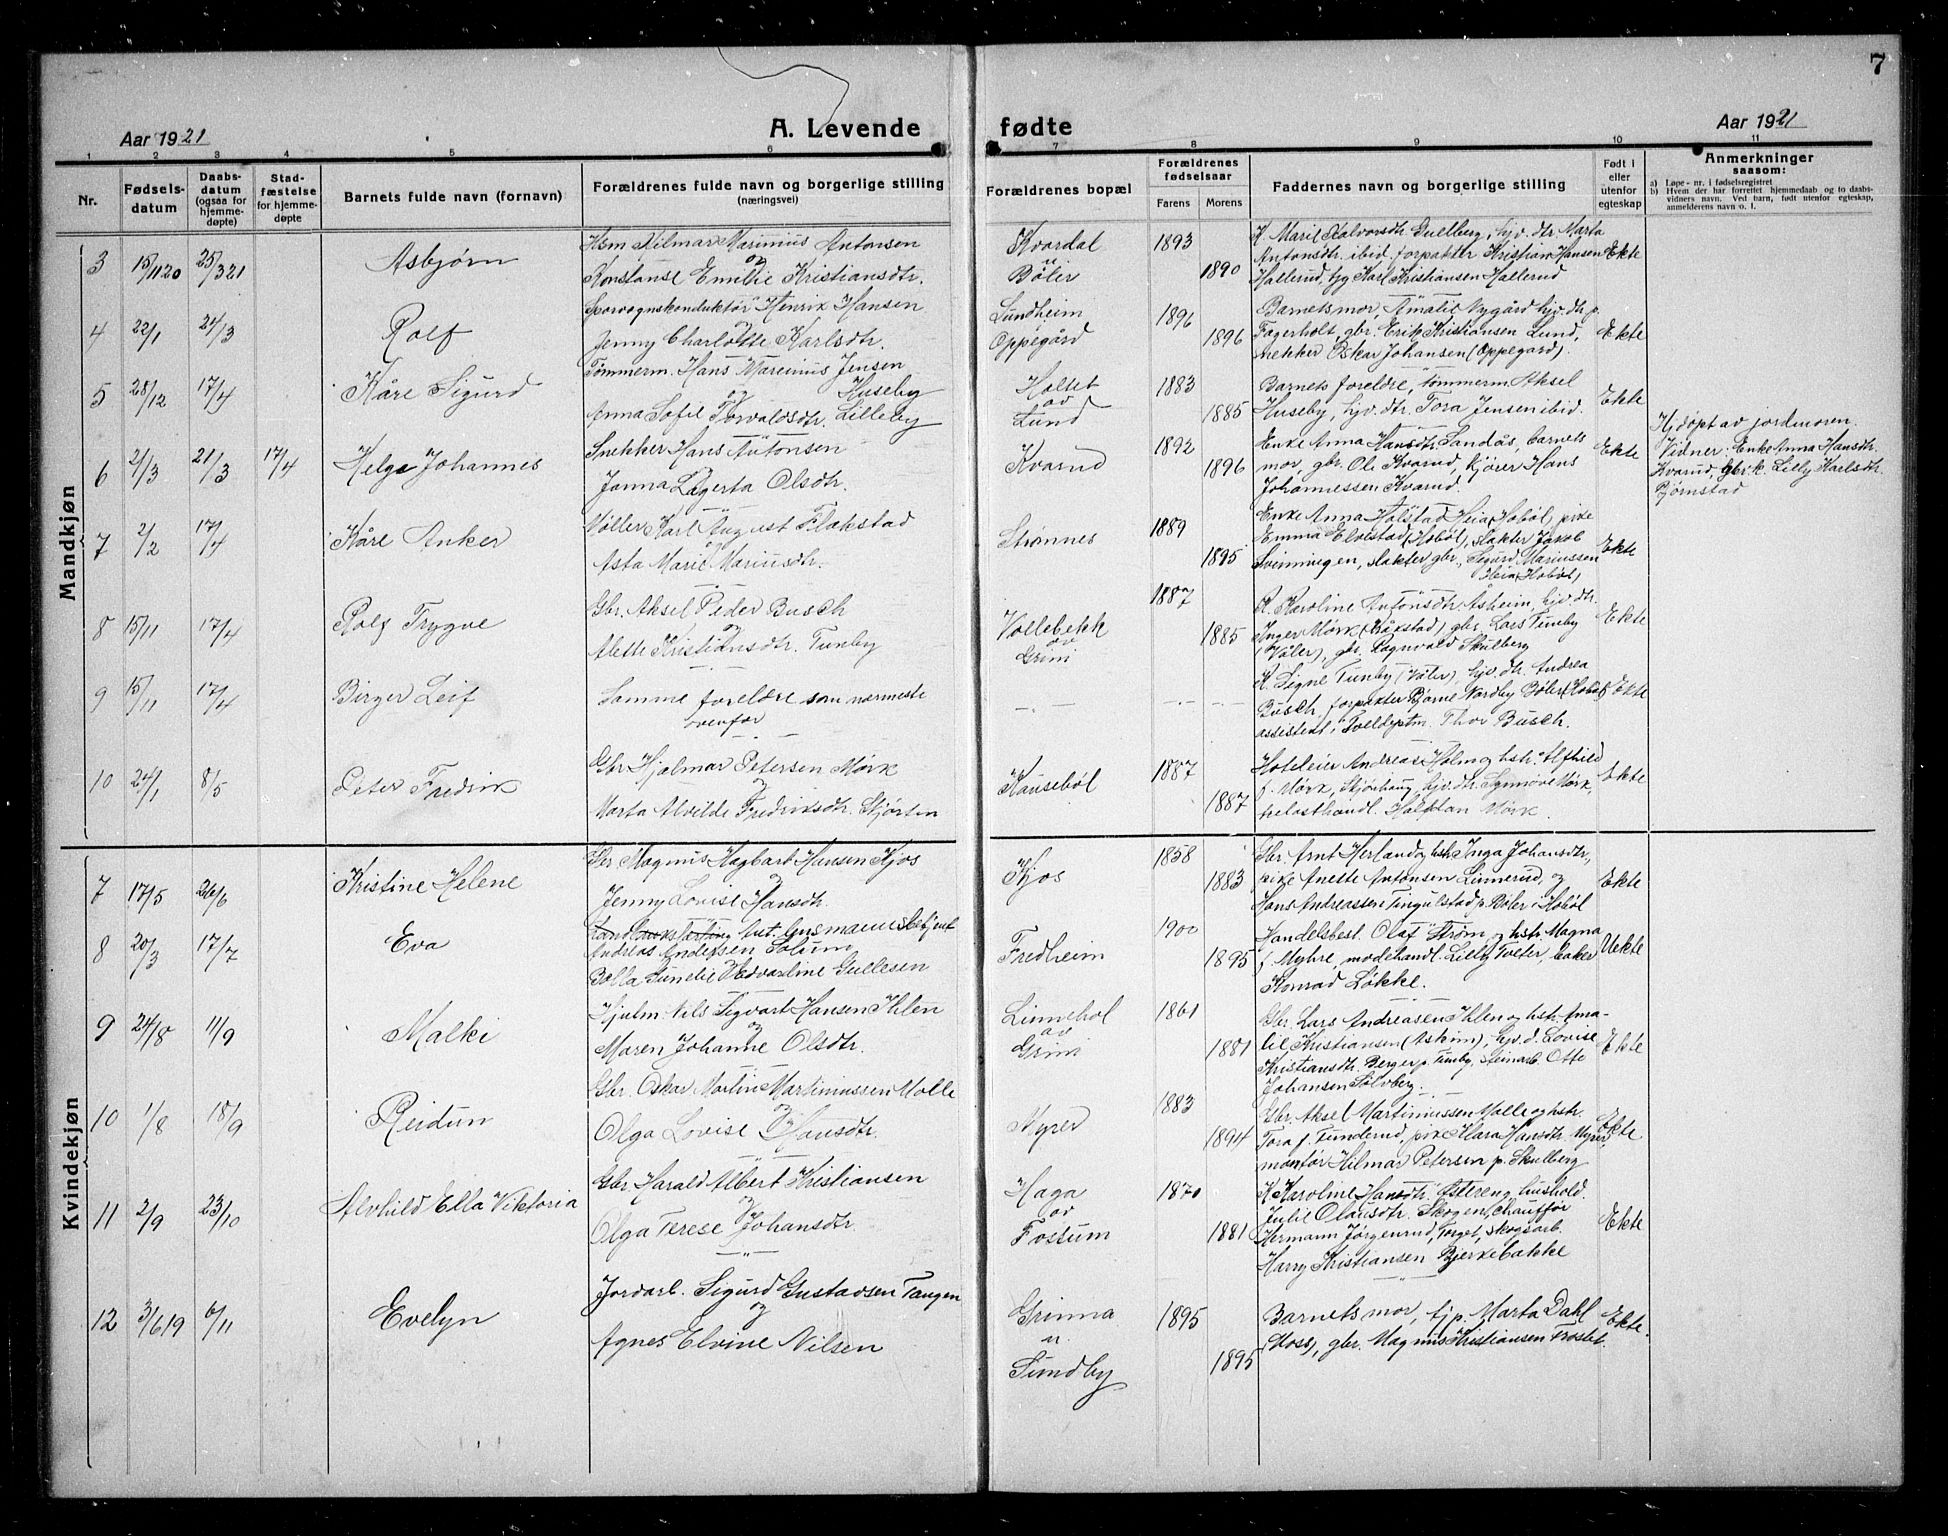 7
Aar 1921
A. Levende
fødte
Aar 1921
1 2 3 4 5 6 7 8 9 10 11
Nr.
Fødsels-
datum
Daabs-
datum
(ogsaa for
hjemme-
døpte)
Stad-
fæstelse
for hjemme-
døpte
Barnets fulde navn (fornavn)
Forældrenes fulde navn og borgerlige stilling
(næringsvei)
Forældrenes bopæl
Forældrenes
fødselsaar
Farens
Morens
Faddernes navn og borgerlige stilling
Født i
eller
utenfor
egteskap
Anmerkninger
saasom:
a) Løpe-nr. i fødselsregistret
b) Hvem der har forrettet hjemmedaab og to daabs-
vidners navn. Ved barn, født utenfor egteskap,
anmelderens navn o. l.
Mandkjøn
3 15/11 20 25/3 21 Asbjørn
Hsm Hilmar Marinius Antonsen
og
Konstanse Emilie Kristiansdtr.
Kvardal
u
Bøler
1893
1890
K. Marie Halvorsdtr Gullberg, hjv. dtr Marta
Antonsdtr. ibid. forpakter Kristian Hansen
Hallerud, tjg Karl Kristiansen Hallerud
Ekte
4 22/1 24/3 Rolf
Sporvognskonduktør Henrik Hansen
og
Jenny Charlotte Karlsdtr.
Lundheim
Oppegård
1896
1896
Barnets mor, Amalie Nygård hjv. dtr. p.
Fagerholt, gbr. Erik Kristiansen Lund,
snekker Oskar Johansen (Oppegård).
Ekte
5 28/12 17/4 Kåre Sigurd
Tømmerm. Hans Marinius Jensen
og Huseby
Anna Sofie Torvaldsdtr. Lilleby
Holtet
av
Lund
1883
1885
Barnets foreldre, tømmerm Aksel
Huseby, hjv. dtr. Tora Jensen ibid.
Ekte
6 2/3 21/3 17/4 Helge Johannes
Snekker Hans Antonsen
og
Janna Lagerta Olsdtr.
Kvarud
1892
1896
Enke Anna Hansdtr. Sandås, barnets
mor, gbr. Ole Kvarud, kjører Hans
Johannessen Kvarud.
Ekte
Hj.døpt av jordmoren.
Vidner: Enke Anna Hansdtr.
Kvarud, gbr.k. Lilly Karlsdtr.
Bjørnstad
7 2/2 17/4 Kåre Anker
Møller Karl August Flakstad
og
Asta Marie Mariusdtr.
Strømnes
1889
1895
Enke Anna Holstad Heia (Hobøl), pike
Emma Elvestad (Hobøl), slakter Jakob
Svinningen, slakter gbr. Sigurd Mariussen
Heia (Hobøl)
Ekte
8 15/11 17/4 Rolf Trygve
Gbr. Aksel Peder Busch
og
Alette Kristiansdtr. Tunby
Vollebekk
av
Grini
1887
1885
K. Karoline Antonsdtr Asheim, hjv. dtr.
Inger Mørk (Råkstad) gbr. Lars Tunby
(Våler), gbr. Ragnvald Skulberg
Ekte
9 15/11 17/4 Birger Leif
Samme foreldre som nærmeste
ovenfor
K. Signe Tunby (Våler), hjv. dtr. Andrea
Busch, forpakter Bjarne Nordby Bøler (Hobøl)
assistent i Tolldeptm. Thor Busch.
Ekte
10 24/1 8/5 Peter Fredrik
Gbr Hjalmar Petersen Mørk
og
Marta Alvilde Fredriksdtr. Skjørten
Kausebøl
1887
1887
Hoteleier Andreas Holm og hstr. Alfhild
f. Mørk, Skjønhaug, hjv. dtr. Synnøve Mørk,
trelasthandl. Halfdan Mørk.
Ekte
Kvindekjøn
7 17/5 26/6 Kristine Helene
Gbr Magnus Hagbart Hansen Kjos
og
Jenny Lovise Hansdtr.
Kjos
1858
1883
Gbr. Arnt Herland og hstr. Inga Johansdtr,
pike Anette Antonsen Linnerud, og
Hans Andreassen Tingulstad p. Bøler i Hobøl
Ekte
8 20/3 17/7 Eva
Andreas Andersen Solum
Fredheim
1900
1895
Handelsbest. Olaf Strøm og hstr. Magna
f. Myhre, modehandl. Lilly Tveter, baker
Konrad Løkke.
Uekte
9 24/8 11/9 Malki
Hjulm. Nils Sigvart Hansen Ihlen
og
Maren Johanne Olsdtr.
Linnehol
av
Grini
1861
1881
Gbr. Lars Andreasen Ihlen og hstr. Ama-
lie Kristiansen (Askim), hjv. d. Lovise
Kristiansdtr. Berger p. Tunby, steinarb. Otto
Johansen Solvberg.
Ekte
10 1/8 18/9 Reidun
Gbr. Oskar Martin Martiniussen Molle
og
Olga Lovise Hansdtr.
Myrer
1883
1894
Gbr. Aksel Martiniussen Molle og hstr.
Tora f. Tunderud, pike Klara Hansdtr. Myrer,
montør Hilmar Petersen p. Skulberg
Ekte
11 2/9 23/10 Alvhild Ella Viktoria
Gbr Harald Albert Kristiansen
og
Olga Terese Johansdtr.
Haga
av
Fossum
1870
1881
K Karoline Hansdtr. Østereng, hushold.
Julie Olausdtr. Skogen, chauffør
Hermann Jørgenrud, Torget, skogsarb.
Harry Kristiansen Bjerkebakke
Ekte
12 3/6 19 6/11 Evelyn
Jordarb. Sigurd Gustavsen Tangen
og
Agnes Elvine Nilsen
Grinna
u.
Sundby
1895
1895
Barnets mor, tj.p. Marta Dahl
(Moss), gbr. Magnus Kristiansen Frostet.
Ekte.